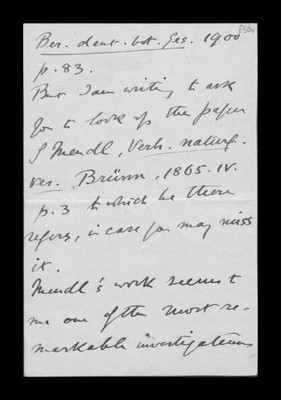 Ber. deut. bot. Ges. 1900
p. 83.
But I am writing to ask
you to look up the paper
of Mendl, Verh. naturf.
Ver. Brünn, 1865. IV.
p. 3 to which he there
refers, in case you may miss
it.
Mendl's work seems to
me one of the most re-
markable investigations